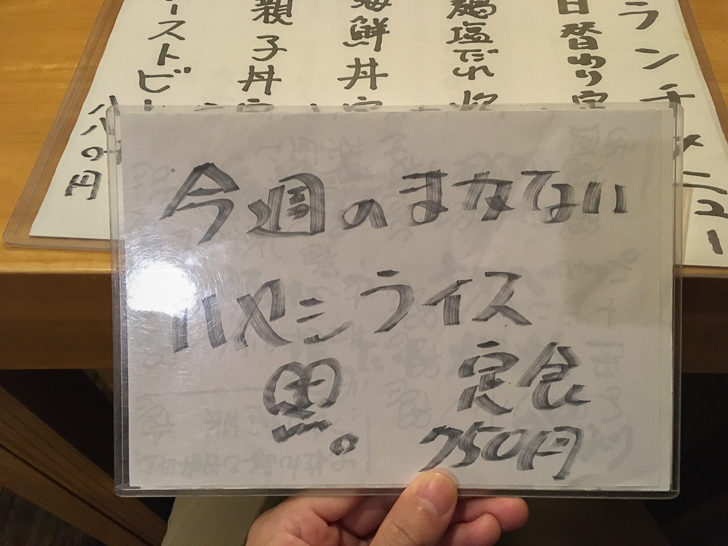 ランチメニュー
日替わり定
鶏塩だれ
海鮮丼定
親子丼定
ーストビ
今週のまかない
ハヤシライス
黒。 定食
750円